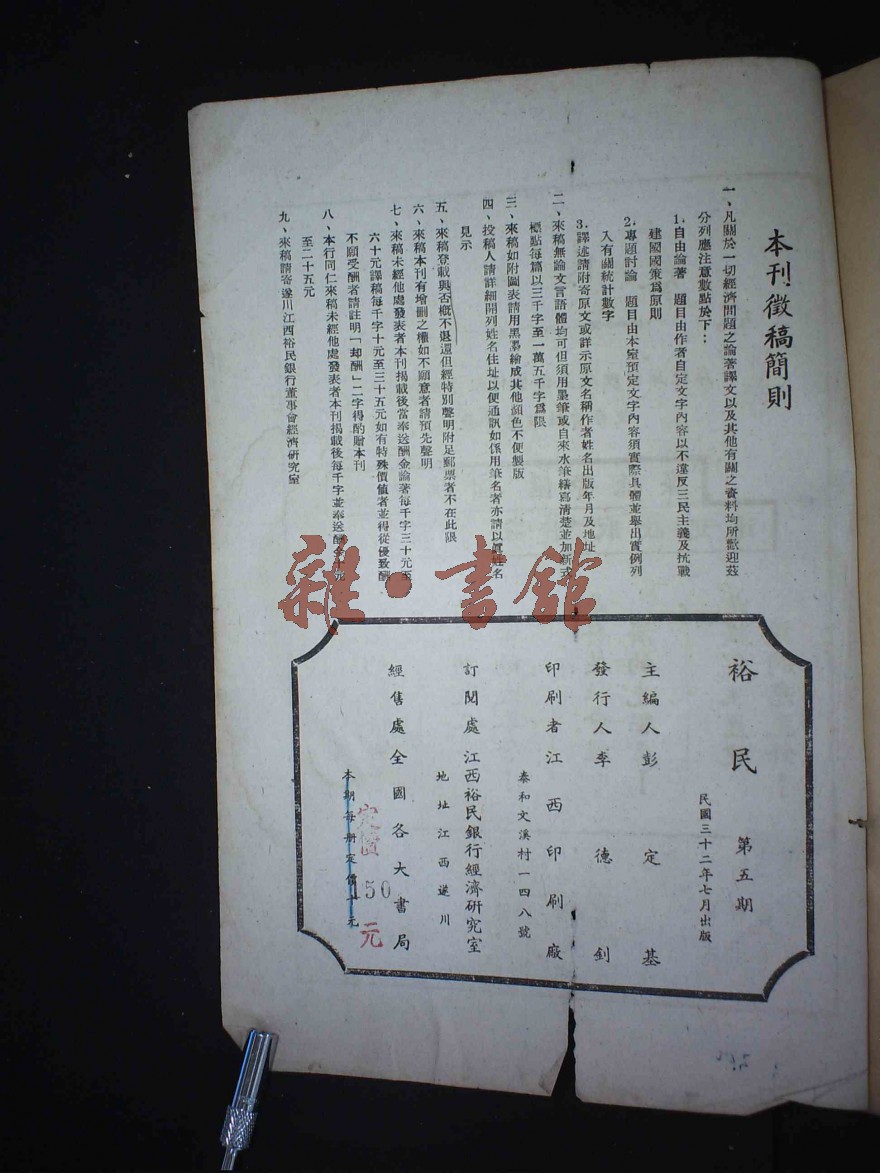 本刊徵稿簡則
一、凡關於一切經濟問題之論著譯文以及其他有關之資料均所歡迎茲
分列應注意數點於下：
1.自由論著　題目由作者自定文字內容以不違反三民主義及抗戰
建國國策爲原則
2.專題討論　題目由本室預定文字內容須實際具體並舉出實例列
入有關統計數字
3.譯述請附寄原文或詳示原文名稱作者姓名出版年月及地址
二、來稿無論文言語體均可但須用墨筆或自來水筆繕寫清楚並加新式
標點每篇以三千字至一萬五千字爲限
三、來稿如附圖表請用黑墨繪成其他顔色不便製版
四、投稿人請詳細開列姓名住址以便通訊如係用筆名者亦請以眞姓名
見示
五、來稿登載與否概不退還但經特別聲明附足郵票者不在此限
六、來稿本刊有增刪之權如不願意者請預先聲明
七、來稿未經他處發表者本刊揭載後當奉送酬金論著每千字三十元至
六十元譯稿每千字十元至三十五元如有特殊價值者並得從優致酬
不願受酬者請註明「却酬」二字得酌贈本刊
八、本行同仁來稿未經他處發表者本刊揭載後每千字並奉送酬金十元
至二十五元
九、來稿請寄遂川江西裕民銀行董事會經濟研究室
裕民　第五期
民國三十二年七月出版
主編人彭定基
發行人李德釗
印刷者江西印刷廠
泰和文溪村一四八號
訂閱處江西裕民銀行經濟研究室
地址江西遂川
經售處全國各大書局
本期每册定價　元
定價50元
雜·書館